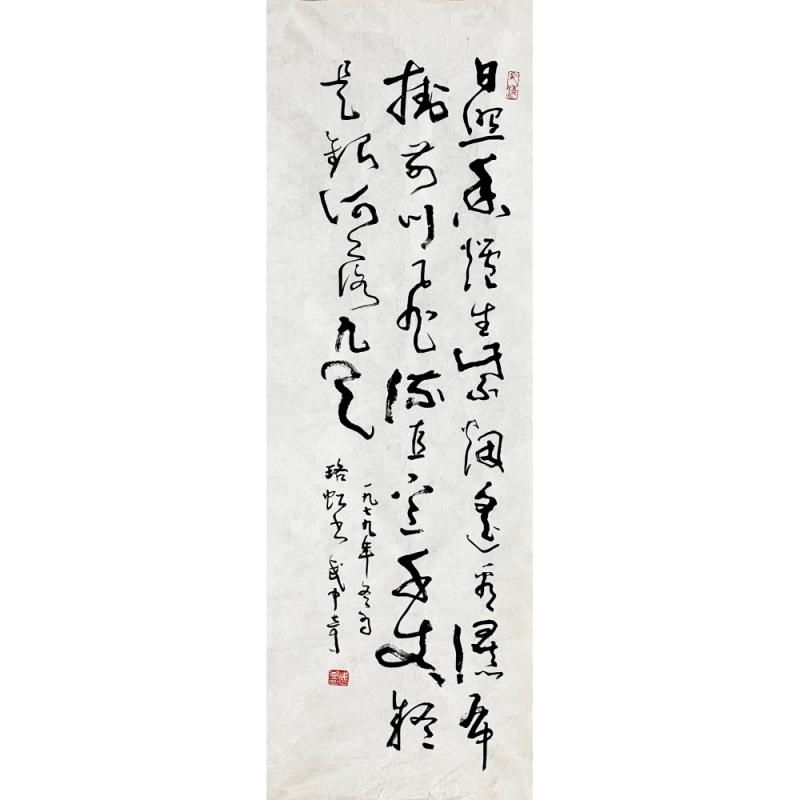 日照香爐生紫烟遙看瀑布
掛前川飛流直下三千尺疑
是銀河落九天
一九七九年冬为
珞虹书 武中奇